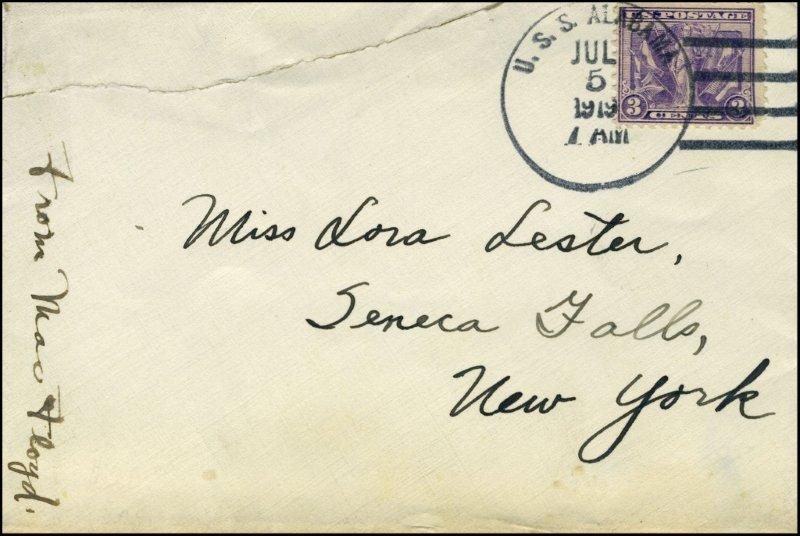 U.S.S. ALABAMA
JUL
5
1919
1 AM
U.S. POSTAGE
3 CENTS 3
Miss Lora Lester,
Seneca Falls,
New York
From Mac Floyd.